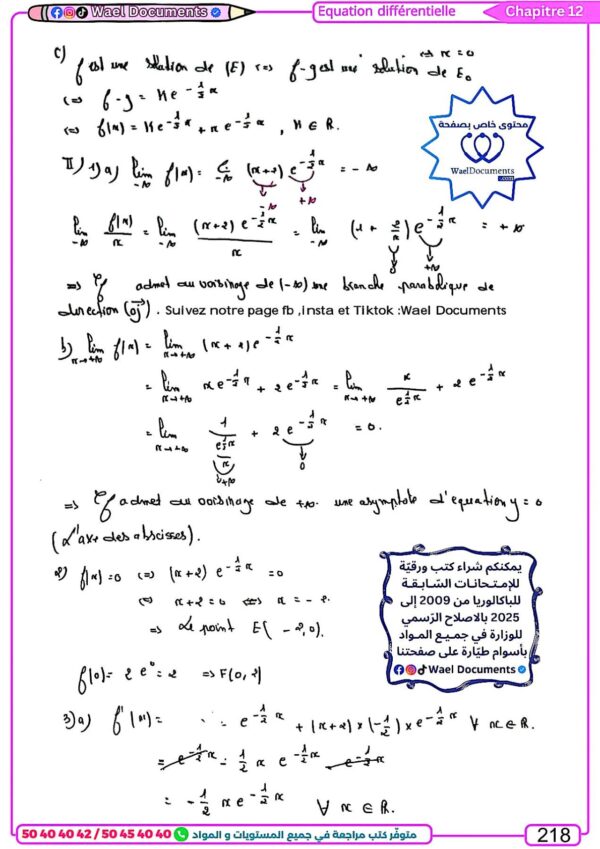 Wael Documents
Equation différentielle
Chapitre 12
c) f est une solution de (E) ⇔ f-g est une solution de E₀
⇔ f-g = K e^{-1/2 x}
⇔ f(x) = K e^{-1/2 x} + x e^{-1/2 x} , K ∈ ℝ.
محتوى خاص بصفحة
WaelDocuments
.com
II) 1) a) lim_{-∞} f(x) = lim_{-∞} (x+2) e^{-1/2 x} = -∞
-∞ +∞
lim_{-∞} f(x)/x = lim_{-∞} (x+2) e^{-1/2 x} / x = lim_{-∞} (1 + 2/x) e^{-1/2 x} = +∞
0 +∞
⇒ ζf admet au voisinage de (-∞) une branche parabolique de
direction (oj) . Suivez notre page fb ,insta et Tiktok :Wael Documents
b) lim_{x→+∞} f(x) = lim_{x→+∞} (x+2) e^{-1/2 x}
= lim_{x→+∞} x e^{-1/2 x} + 2 e^{-1/2 x} = lim_{x→+∞} x / e^{1/2 x} + 2 e^{-1/2 x}
= lim_{x→+∞} 1 / (e^{1/2 x} / x) + 2 e^{-1/2 x} = 0.
+∞ 0
⇒ ζf admet au voisinage de +∞ une asymptote d'equation y = 0
(L'axe des abscisses).
2) f(x)=0 ⇔ (x+2) e^{-1/2 x} = 0
⇔ x+2 = 0 ⇔ x = -2.
⇒ Le point E(-2,0).
f(0) = 2 e^0 = 2 ⇒ F(0,2)
يمكنكم شراء كتب ورقيّة
للإمتحانات السّابقة
للباكالوريا من 2009 إلى
2025 بالاصلاح الرّسمي
للوزارة في جميع المواد
بأسوام طيّارة على صفحتنا
Wael Documents
3) a) f'(x) = e^{-1/2 x} + (x+2) × (-1/2) × e^{-1/2 x} ∀ x ∈ ℝ.
= e^{-1/2 x} - 1/2 x e^{-1/2 x} - e^{-1/2 x}
= -1/2 x e^{-1/2 x} ∀ x ∈ ℝ.
50 40 40 42 / 50 45 40 40 متوفّر كتب مراجعة في جميع المستويات و المواد
218